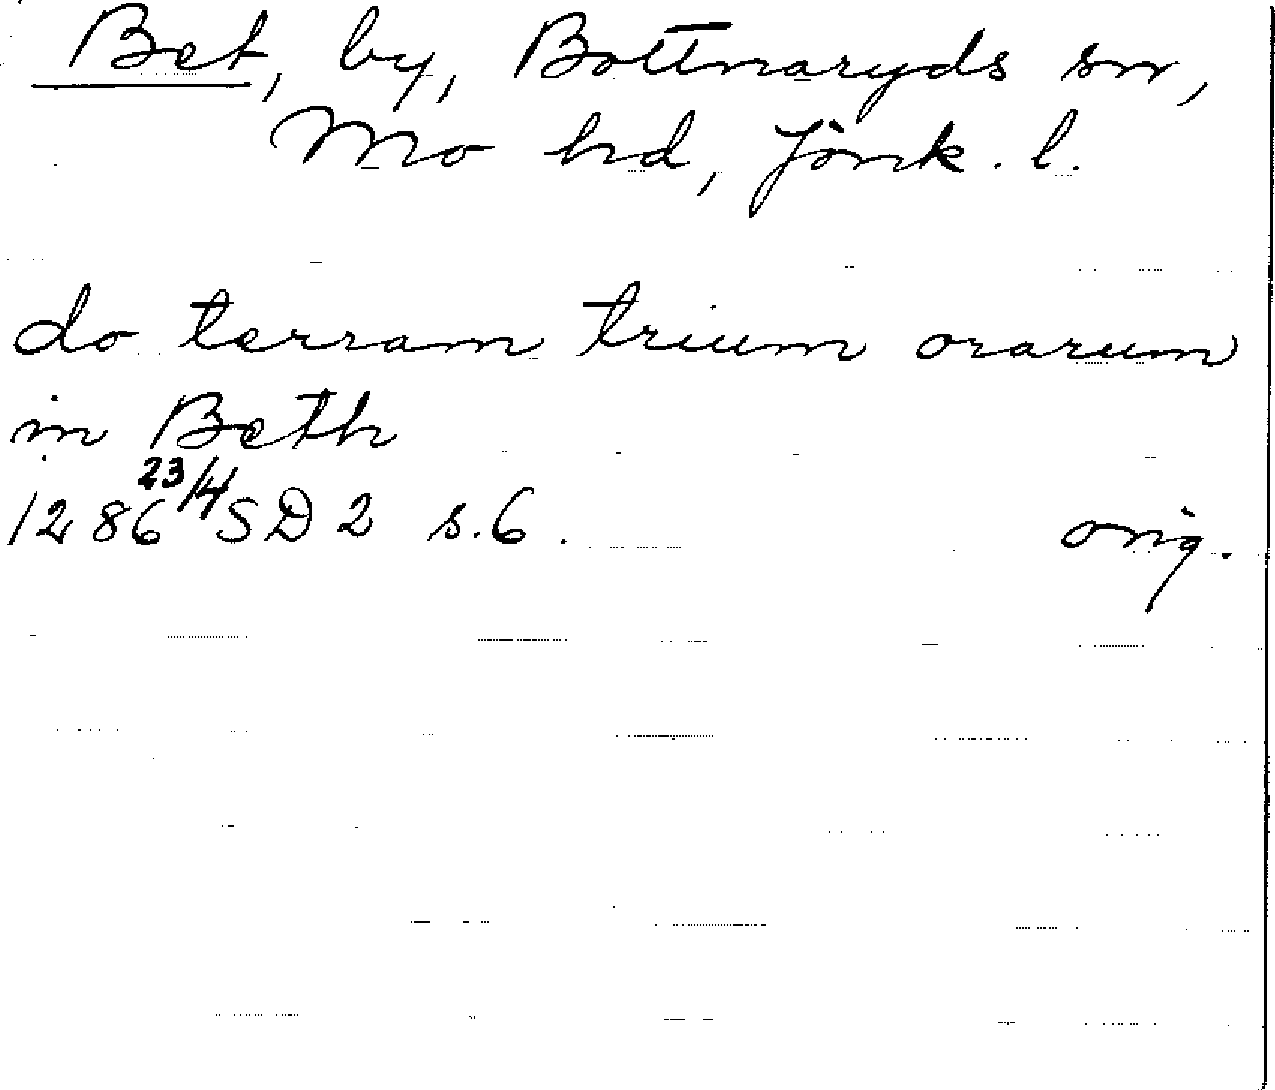 Bet, by, Bottnaryds sn,
Mo hd, Jönk. l.
do terram trium orarum
in Beth
1286 23/4 SD 2 s. 6. orig.